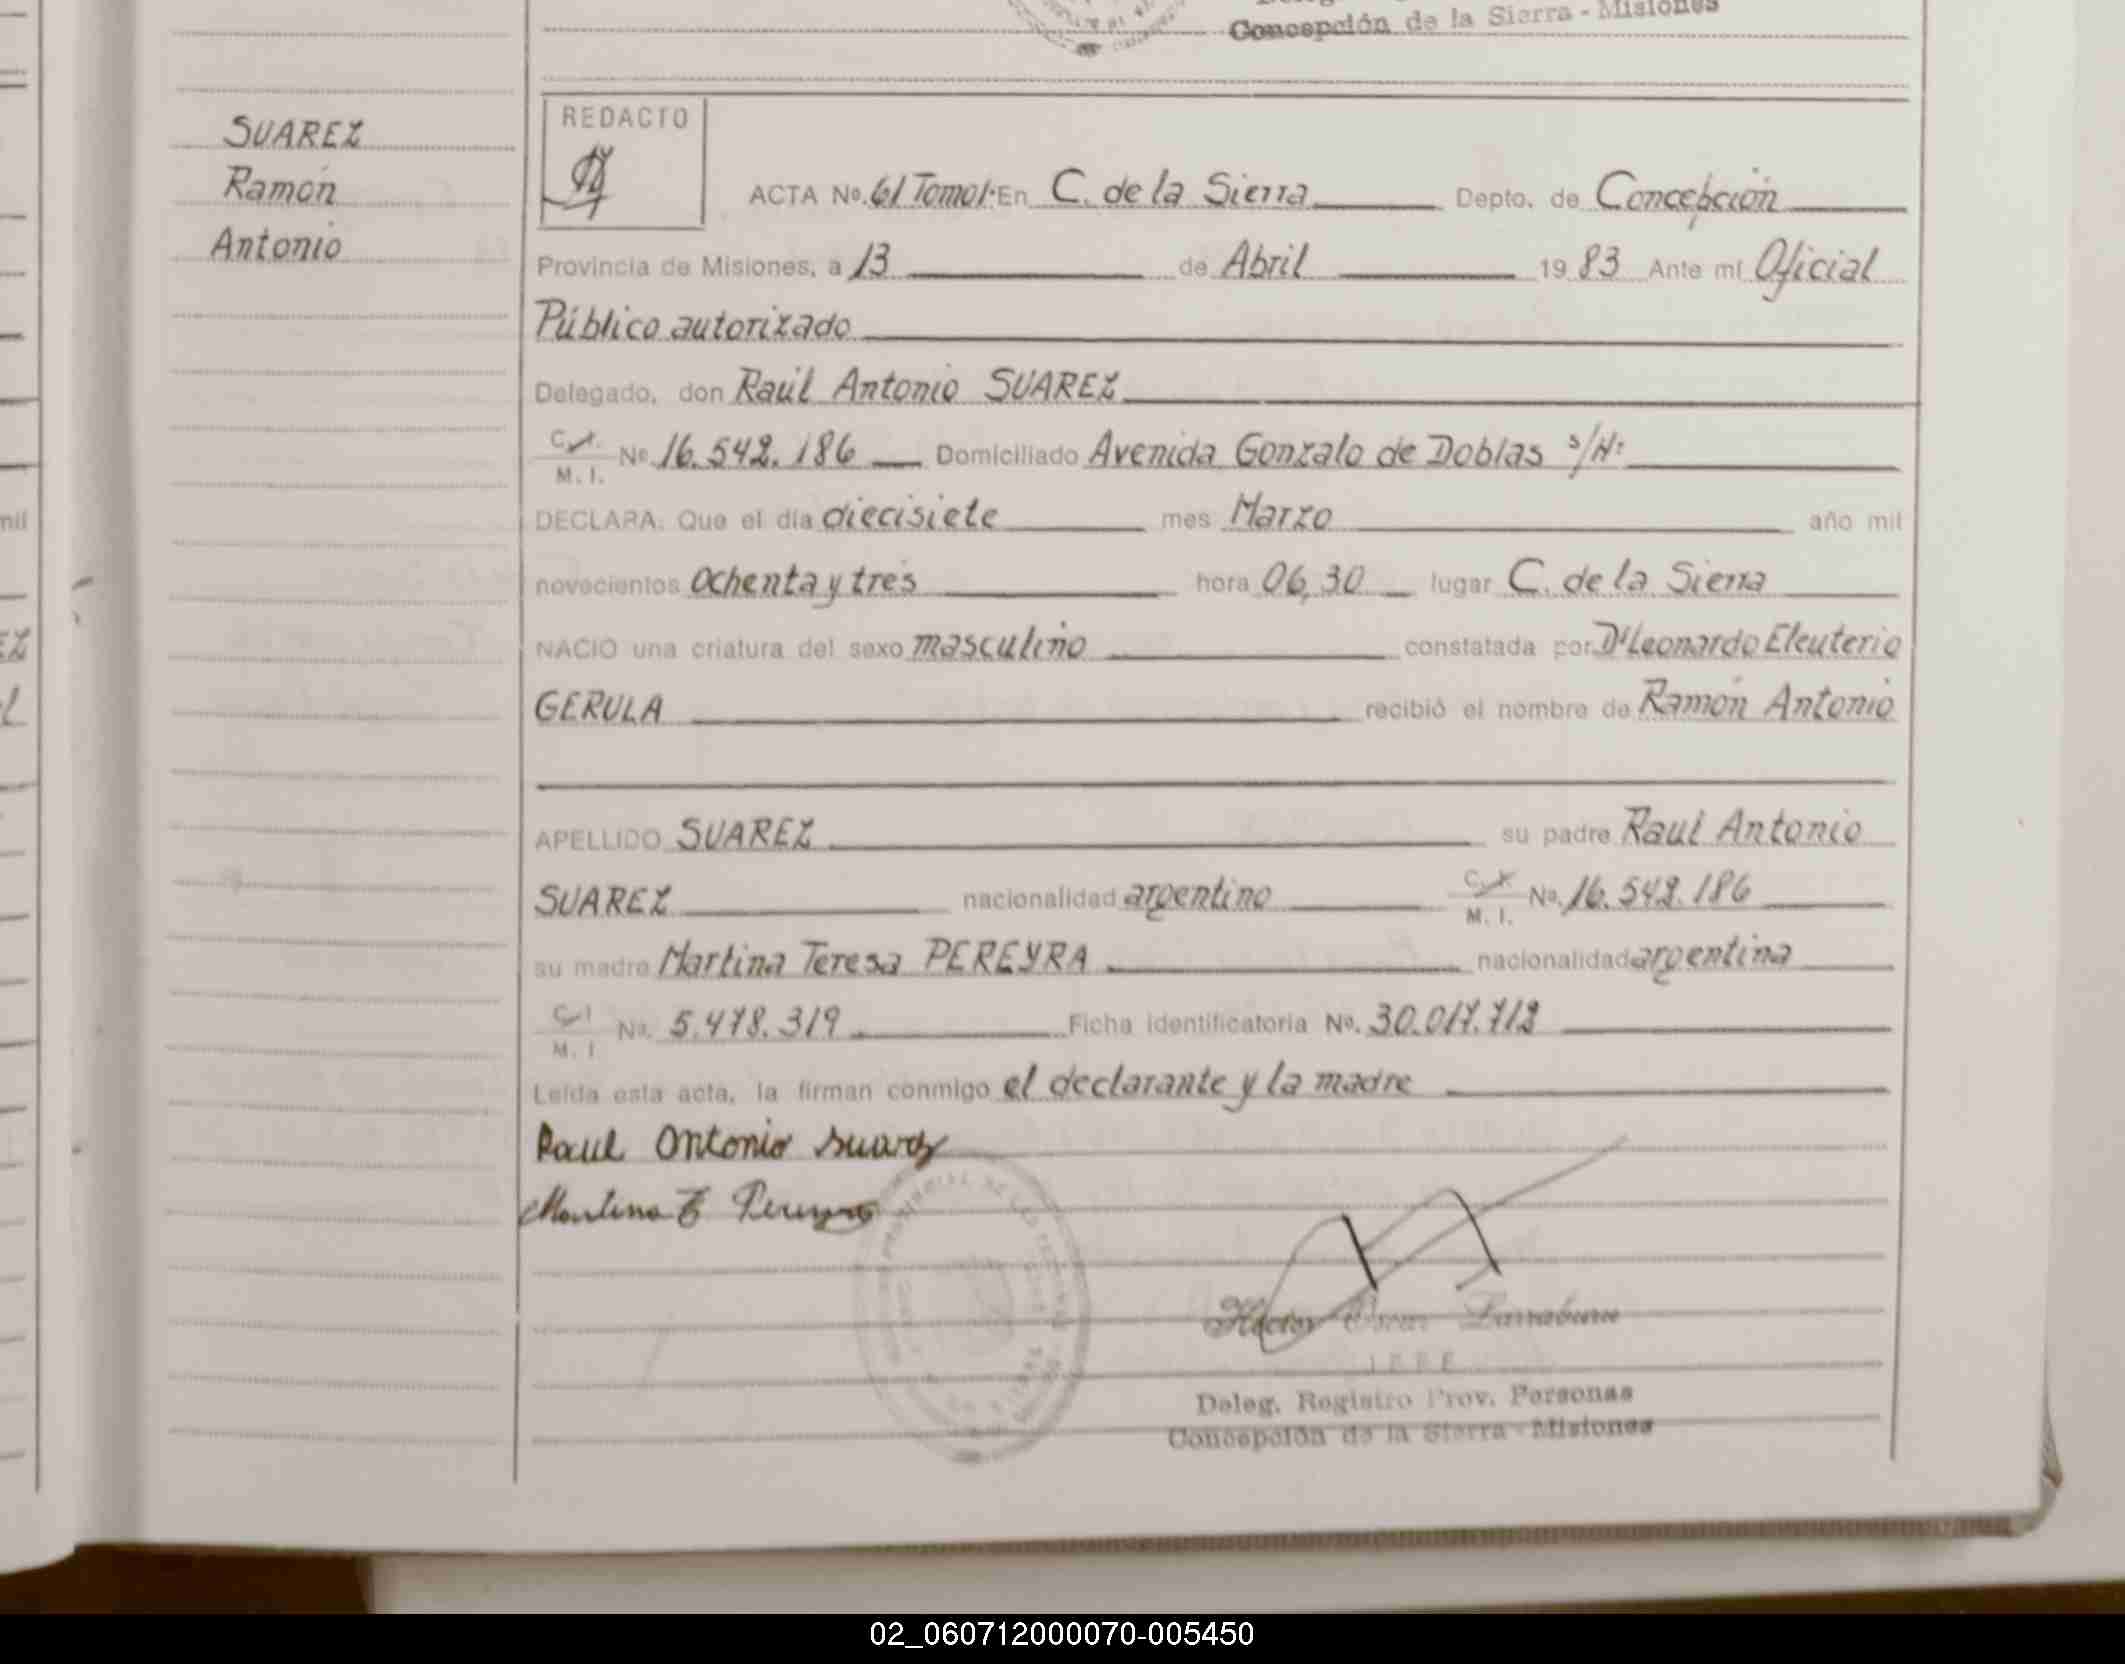 Concepción de la Sierra - Misiones
SUAREZ
Ramón
Antonio
REDACTO
ACTA No. 61 Tomo I. En C. de la Sierra Depto. de Concepción
Provincia de Misiones, a 13 de Abril 19 83 Ante mí Oficial
Público autorizado
Delegado, don Raúl Antonio SUAREZ
C. I.
M. I. No 16.542.186 Domiciliado Avenida Gonzalo de Doblas s/Nº
DECLARA: Que el día diecisiete mes Marzo año mil
novecientos ochenta y tres hora 06,30 lugar C. de la Sierra
NACIO una criatura del sexo masculino constatada por Dr Leonardo Eleuterio
GERULA recibió el nombre de Ramón Antonio
APELLIDO SUAREZ su padre Raul Antonio
SUAREZ nacionalidad argentino C. I.
M. I. No. 16.542.186
su madre Martina Teresa PEREYRA nacionalidad argentina
C. I
M. I No. 5.478.319 Ficha identificatoria No. 30.017.712
Leída esta acta, la firman conmigo el declarante y la madre
Raul Antonio Suarez
Martina T Pereyra
Hector Oscar
JEFE
Deleg. Registro Prov. Personas
Concepción de la Sierra - Misiones
mil
EZ
02_060712000070-005450